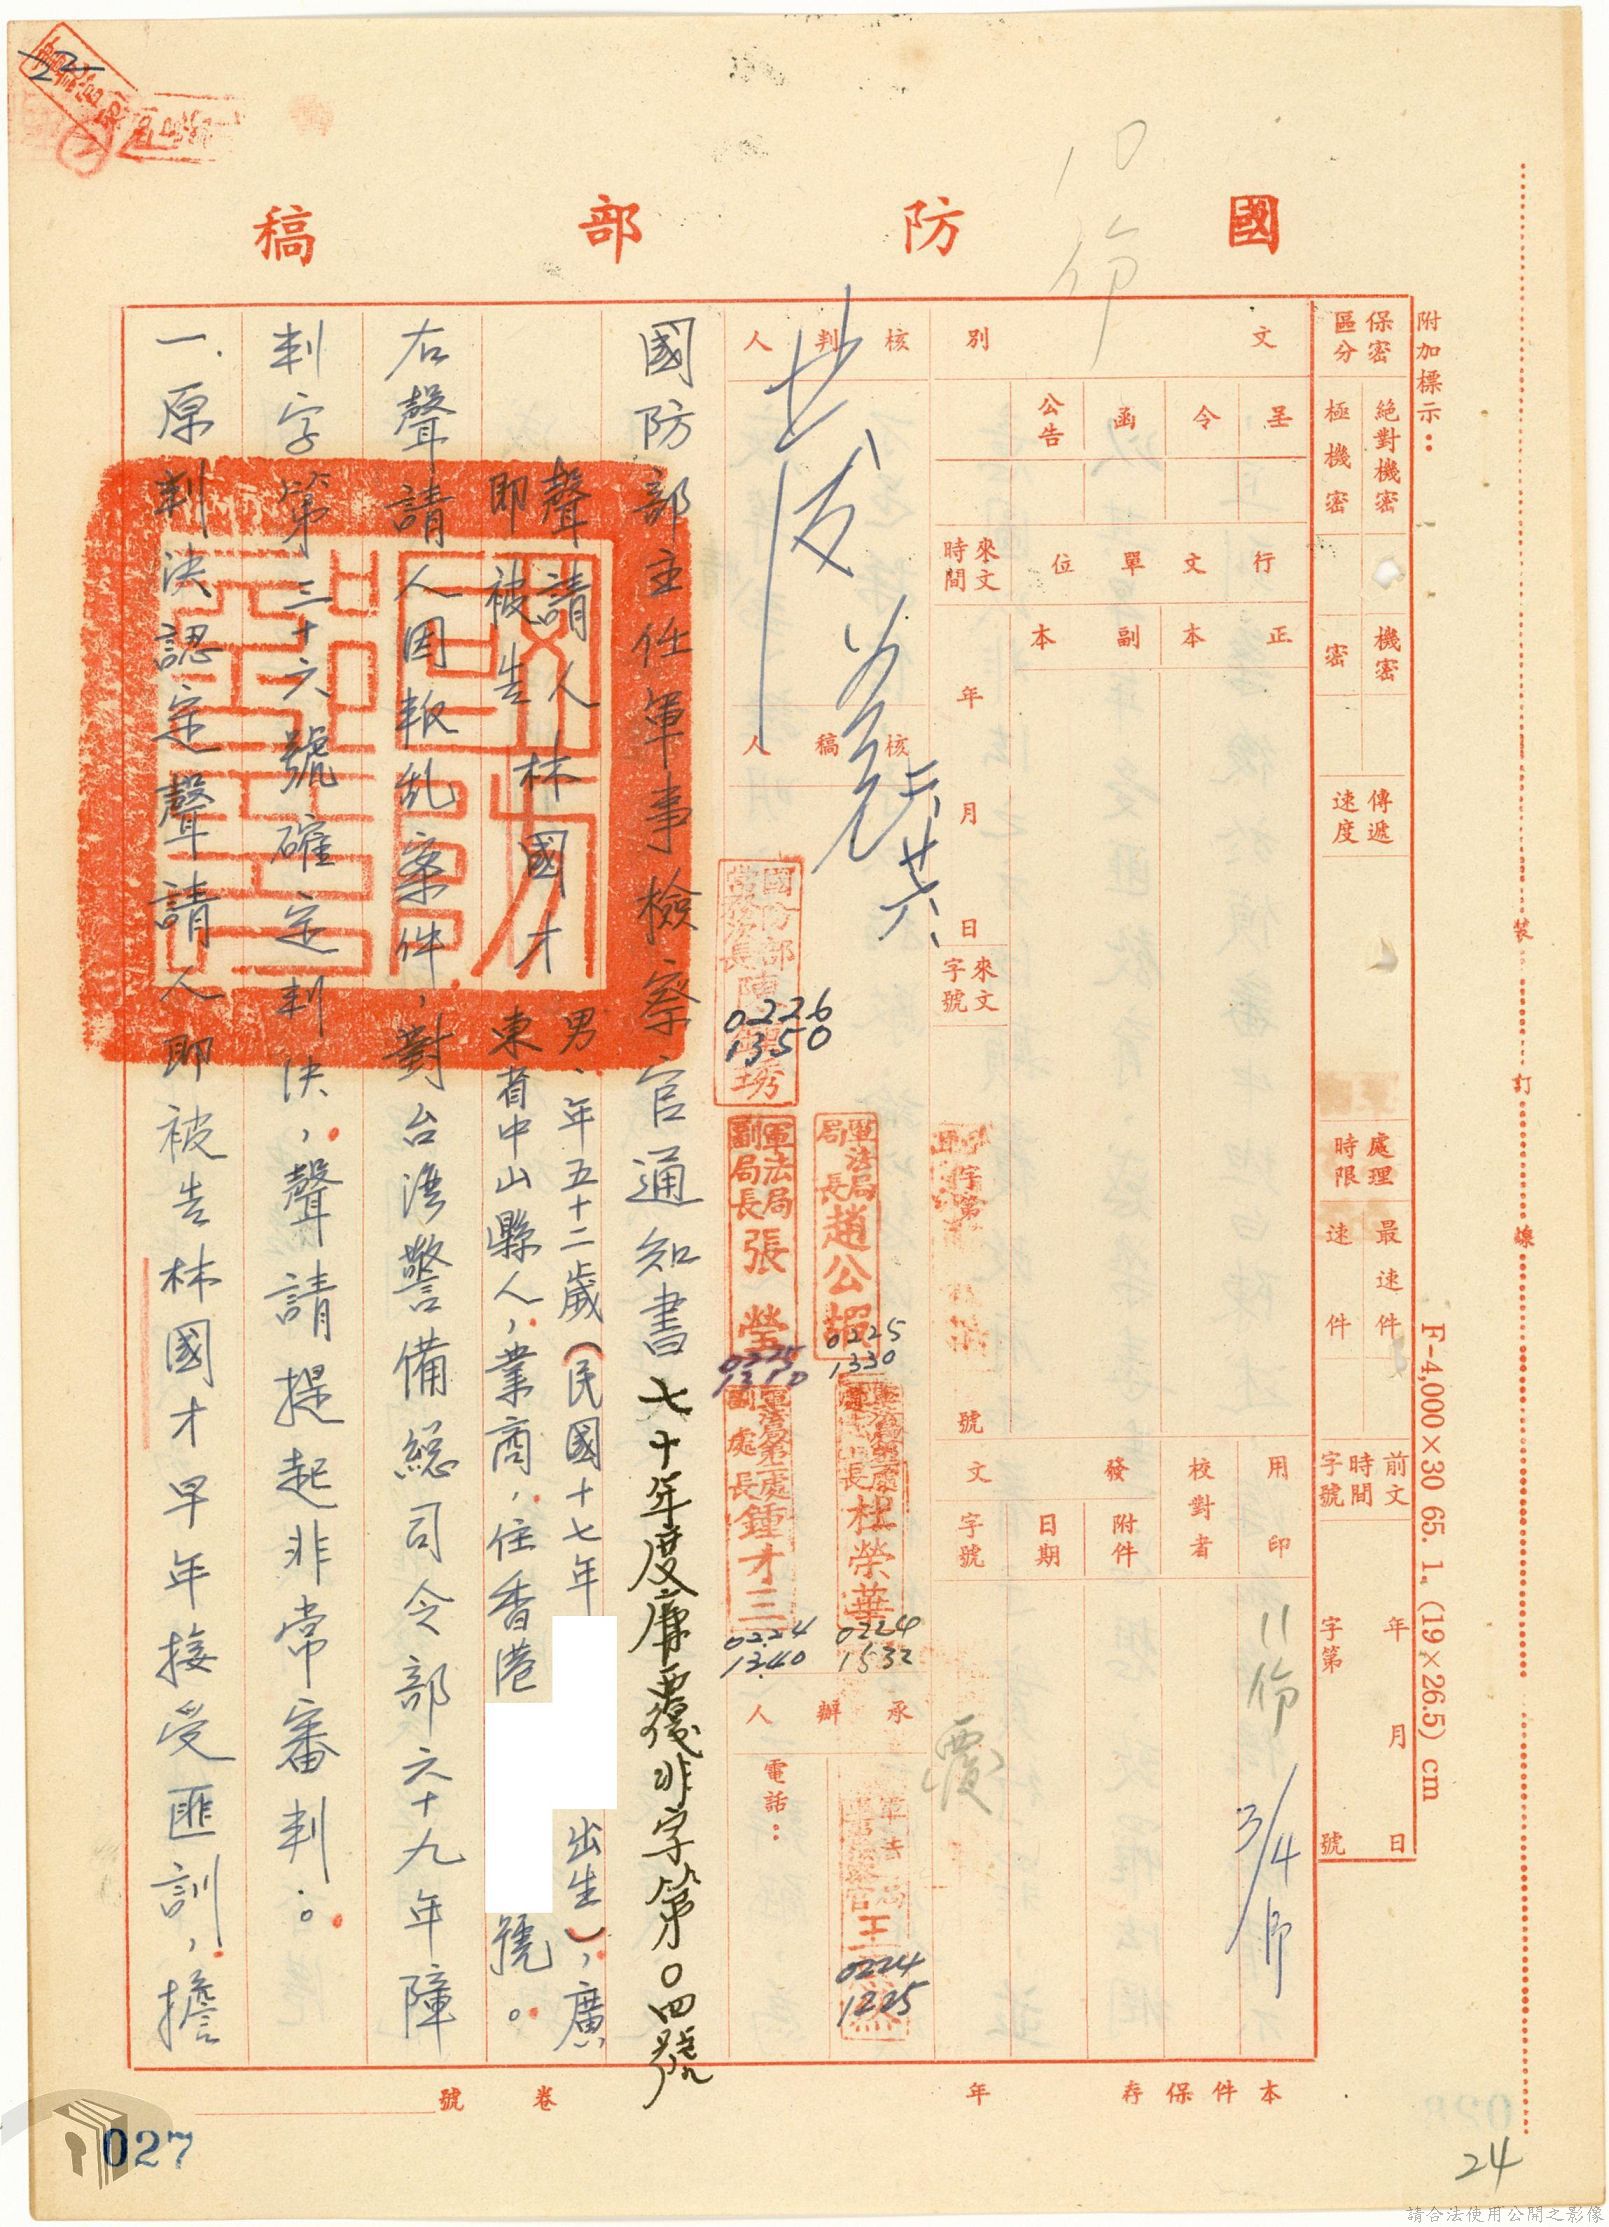 國防部稿
附加標示：
保密區分
絕對機密
極機密
機密
密
傳遞速度
處理時限
最速件
速件
前文時間字號
年月日
字第號
F-4,000×30 65. 1. (19×26.5) cm
裝訂線
文別
呈
令
函
公告
行文單位
正本
副本
來文時間
年月日
來文字號
字第號
用印
校對者
發文
附件
日期
字號
11份
3/4印
10份
覆
核判人
核稿人
承辦人
電話：
廿六
國防部常務次長陳
0226
1350
軍法局局長趙公嘏
0225
1330
軍法局副局長張瑩
杜榮華
0224
1532
副處長鍾才三
0224
1340
王
0224
1225
國防部主任軍事檢察官通知書七十年度廉覆非字第〇四號
聲請人
即被告
林國才
男，年五十二歲（民國十七年
出生），廣
東省中山縣人，業商，住香港
號。
右聲請人因叛乱案件，對台湾警備総司令部六十九年障
判字第三十六號確定判決，聲請提起非常審判。
一.原判決認定聲請人即被告林國才早年接受匪訓，擔
本件保存年
卷號
027
24
請合法使用公開之影像